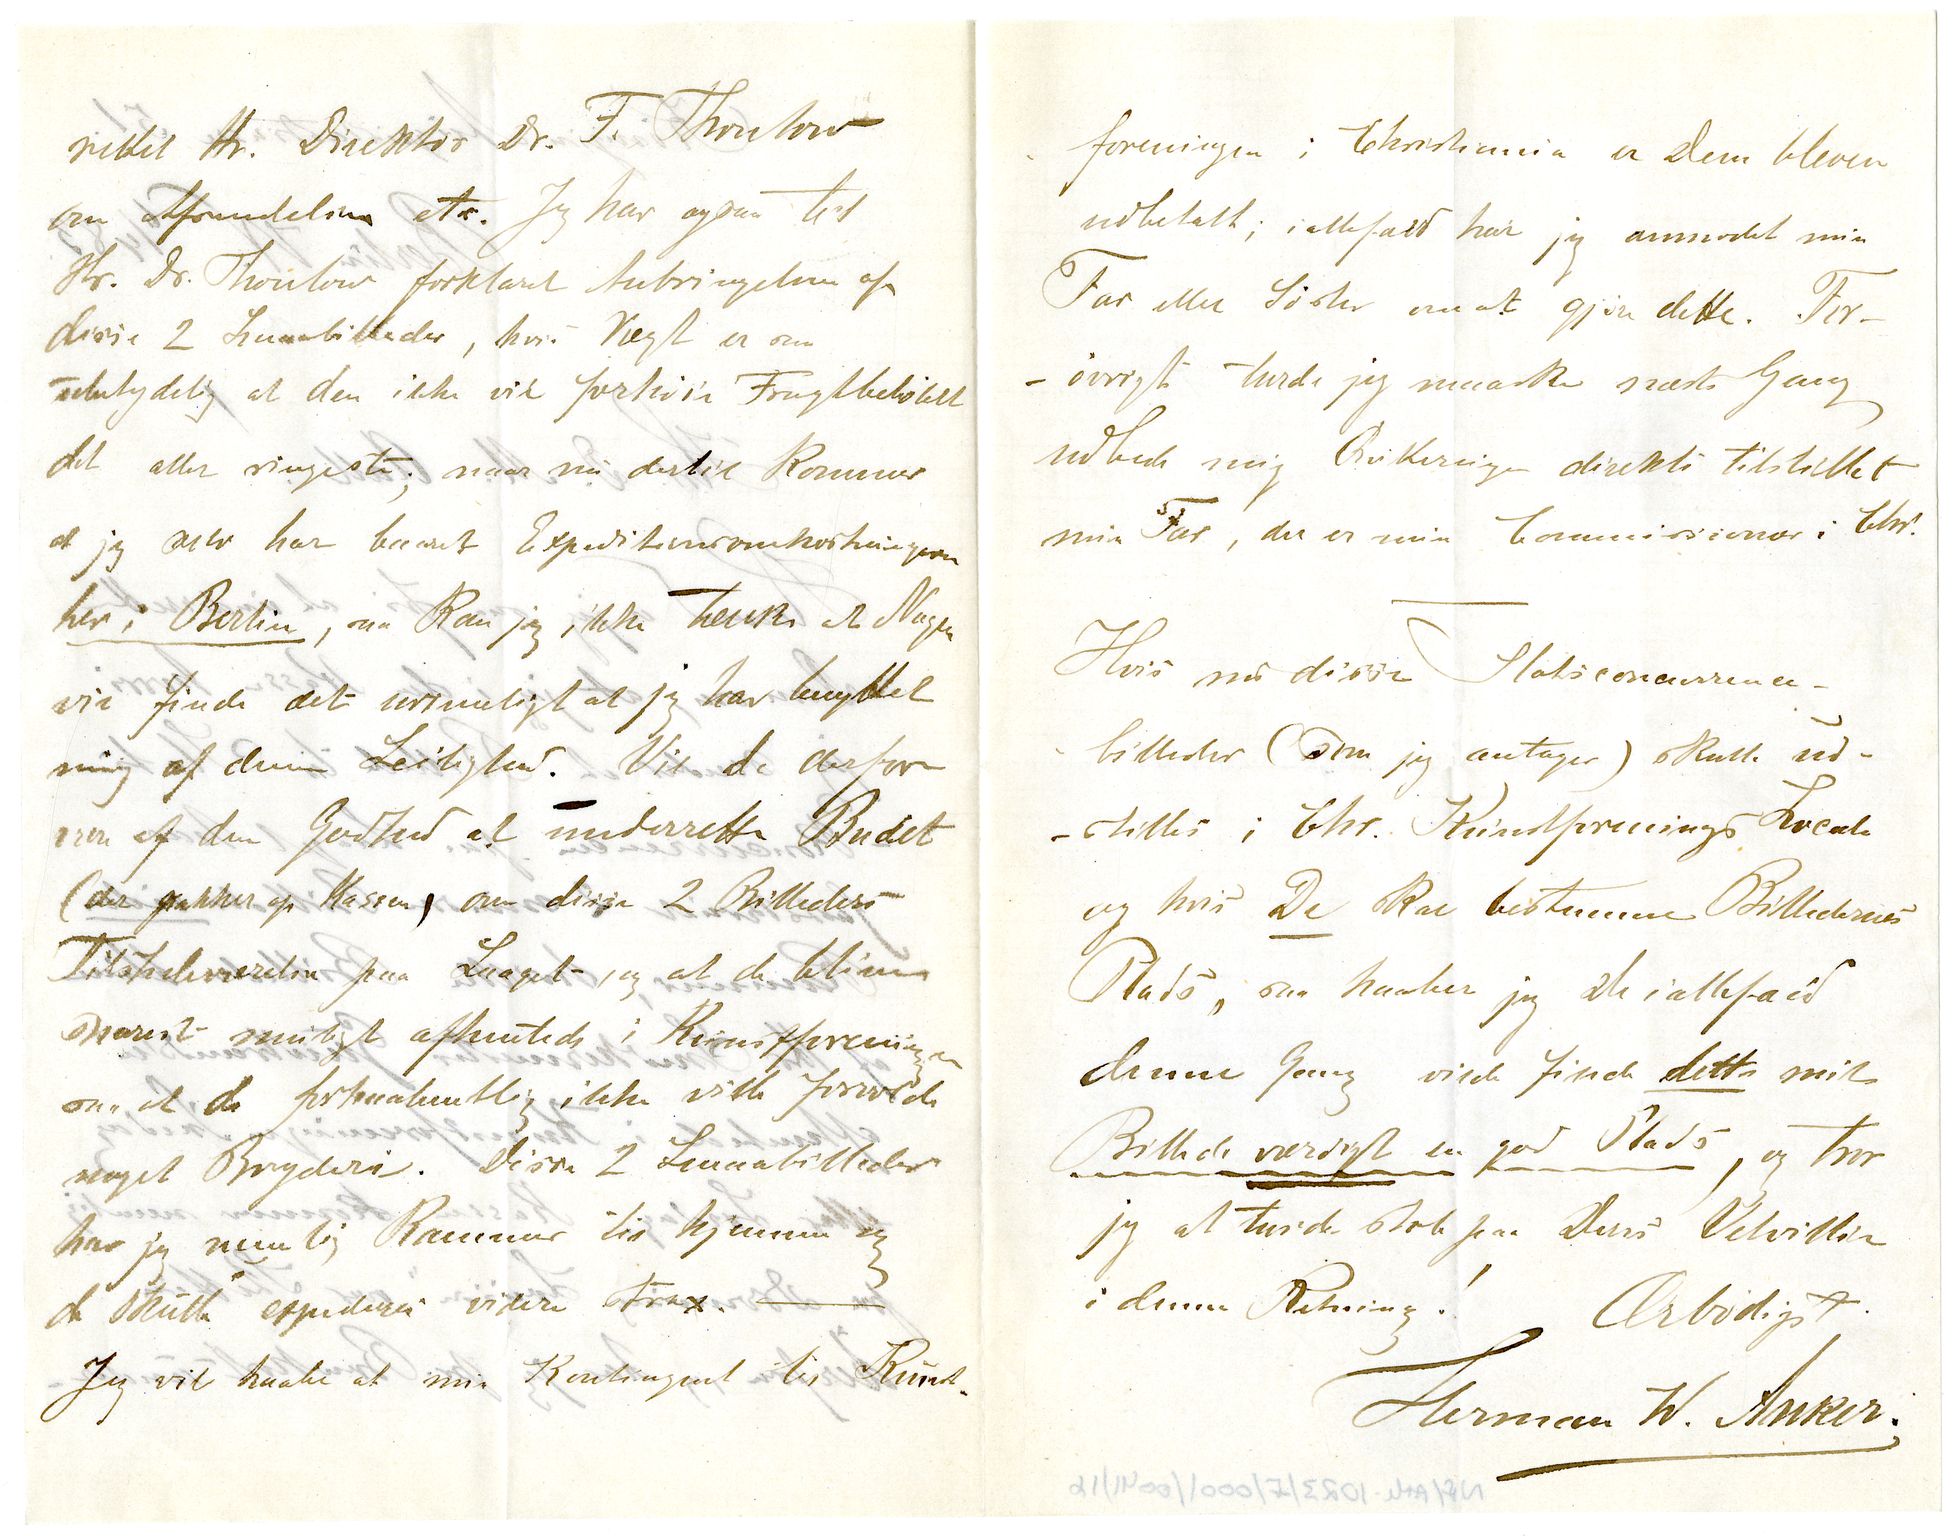 rettet Hr. Direktör Dr. F. Thoulow
om Afsendelsen etc. Jeg har ogsaa til
Hr. Dr. Thoulow forklaret Anbringelsen af
disse 2 Smaabilleder, hvis Vægt er saa
ubetydelig at den ikke vil forhöie Fragtbelöbet
det aller ringeste; naar nu dertil kommer
at jeg selv har baaret Expeditionsomkostningerne
her i Berlin, saa kan jeg ikke tænke at Nogen
vil finde det urimeligt at jeg har benyttet
mig af denne Leilighed. Vil de derfor
være af den Godhed at underrette Budet
(der pakker op Kassen) om disse 2 Billeders
Tilstedeværelse paa Laaget, og at de blive
snarest muligt afhentede i Kunstforeningen
saa at de forhaabentlig ikke ville forvolde
noget Bryderi. Disse 2 Smaabilleder
har jeg nemlig Rammer til hjemme og
de skulle expederes videre strax. —
Jeg vil haabe at min Kontingent til Kunst-
foreningen i Christiania er Dem bleven
udbetalt; iallefald har jeg anmodet min
Far eller Söster om at gjöre dette. For-
- övrigt turde jeg maaske næste Gang
udbede mig Qvitteringen direkte tilstillet
min Far, der er min Commissionær i Chr.
Hvis nu disse Statsconcurrence-
billeder (som jeg antager) skulle ud-
- stilles i Chr. Kunstforenings Locale
og hvis De skal bestemme Billedernes
Plads, saa haaber jeg De iallefald
denne Gang vilde finde dette mit
Billede værdigt en god Plads, og tror
jeg at turde stole paa Deres Velvillie
i denne Retning! Ærbödigst.
Herman W. Anker.